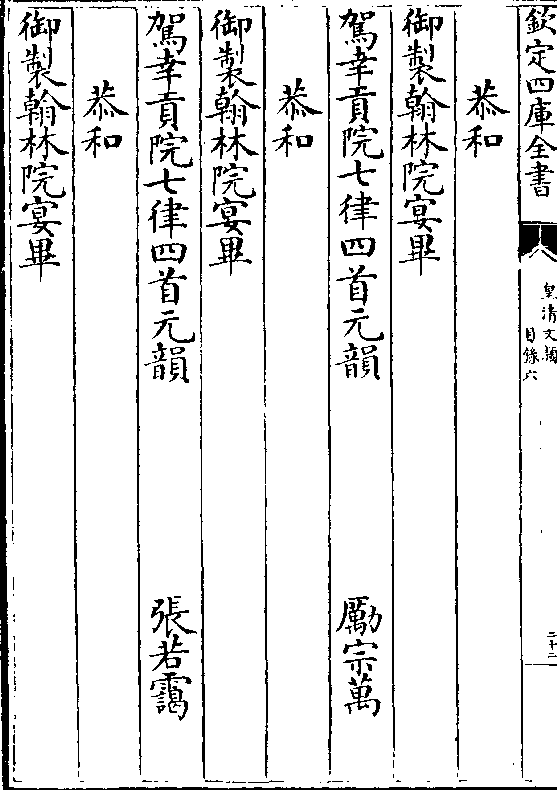 欽定四庫全書
皇清文頴
目録六
二十二
恭和
御製翰林院宴畢
駕幸貢院七律四首元韻 勵宗萬
恭和
御製翰林院宴畢
駕幸貢院七律四首元韻 張若靄
恭和
御製翰林院宴畢